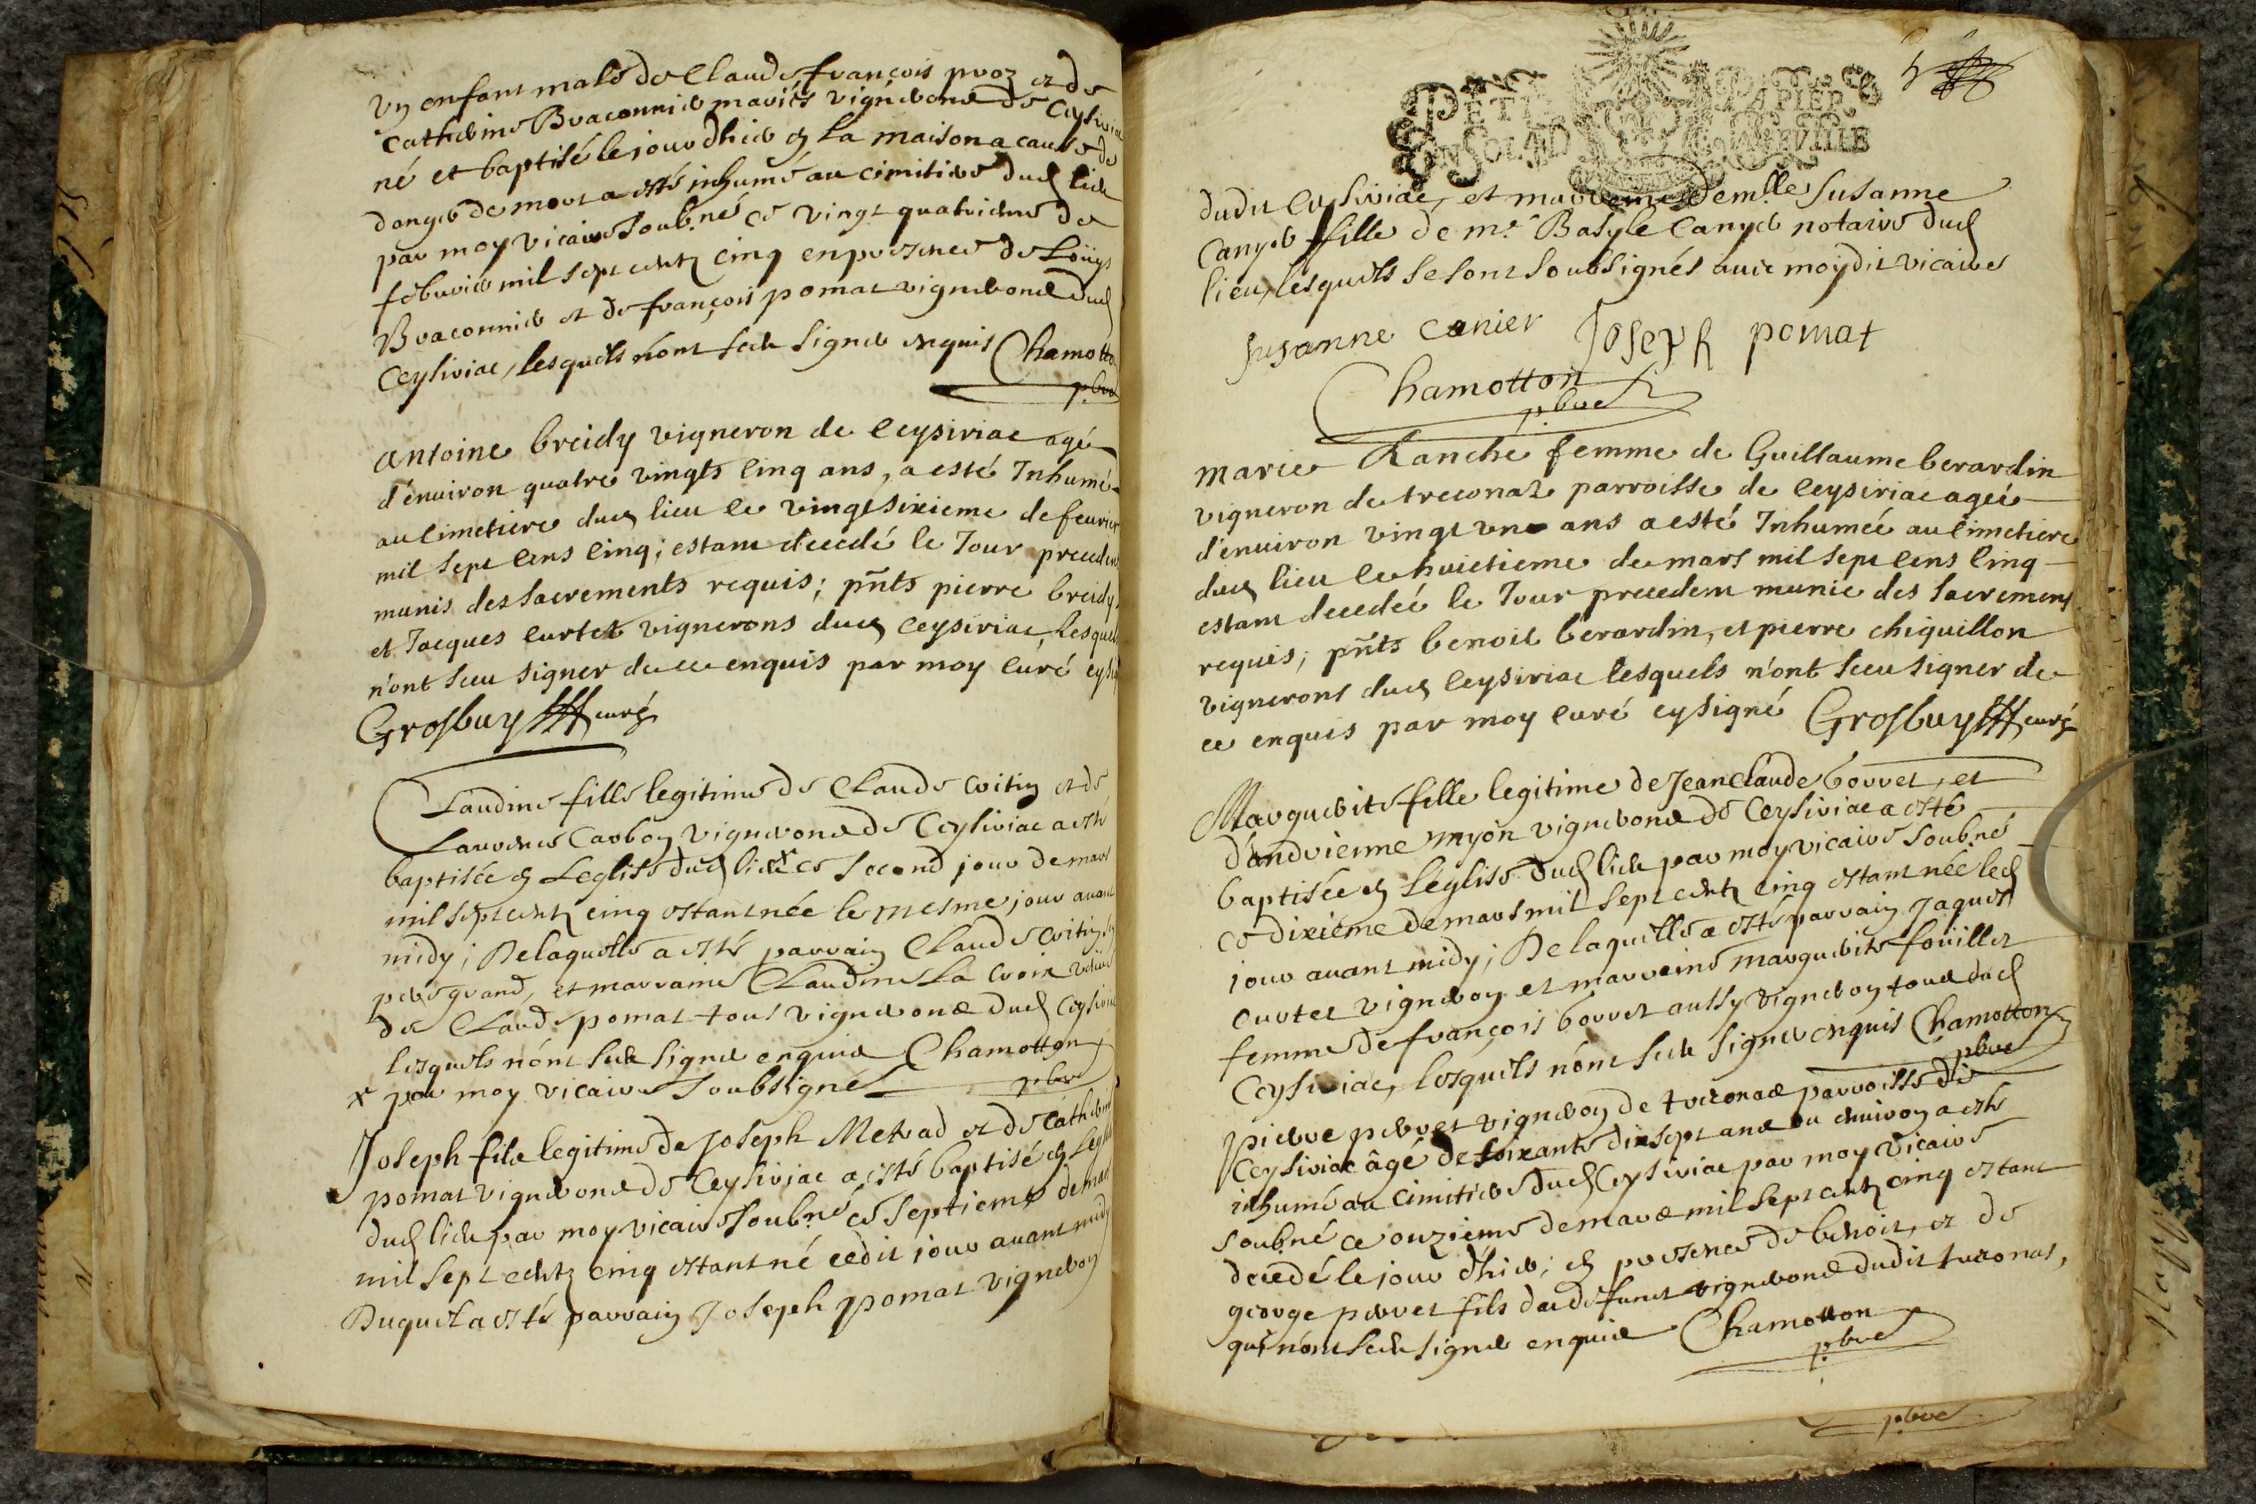 un enfant male de Claude françois proz et de
Catherine Braconnier mariés vignerons de Ceysiria
né et baptisé le jour dhier en la maison a cause de
danger de mort a esté inhumé au cimitiere dud lieu
par moy vicaire soub.né ce vingt quatrieme de
febvrier mil sept centz cinq en presence de Loüys
Braconnier et de françois pomat vignerons dud
Ceysiriac, lesquels n'ont sceu signer enquis Chamotto
pbre
antoine breidy vigneron de Ceysiriac agé
d'enuiron quatre vingts cinq ans, a esté Inhumé
au cimetiere dud lieu le vingt sixieme de feurier
mil sept cens cinq; estant decedé le Jour preceden
munis des sacrements requis; pnts pierre breidy
et Jacques curtet vignerons dud Ceysiriac, lesquels
n'ont sceu signer de ce enquis par moy curé cysi
Grosbuy curé
Claudine fille legitime de Claude voitin et de
Laurence Carbon vignerons de Ceysiriac a esté
baptisée en Leglise dud lieu x ce second jour de mars
mil sept centz cinq estant née le mesme jour auant
midy; De laquelle a esté parrain Claude voitin
pere grand, et marraine Claudine La croix veuve
de Claude pomat tous vignerons dud Ceysiria
lesquels n'ont sceu signer enquis Chamotton
x par moy vicaire soubsigné pbre
Joseph fils legitime de Joseph Metrad et de Catherine
pomat vignerons de Ceysiriac a esté baptisé en Legli
dud lieu par moy vicaire soub.né ce septieme de mars
mil sept centz cinq estant né cedit jour auant midy
Duquel a esté parrain Joseph pomat vigneron
PETIT PAPIER
UN SOL
dudit Ceysiriac, et marreine dem.lle Susanne
Canyer fille de me. Basyle Canyer notaire dud
lieu, lesquels se sont soubsignés auec moydit vicaire
susanne canier Joseph pomat
Chamotton
pbre
marie Ranché femme de Guillaume berardin
vigneron de treconaz parroisse de Ceysiriac ageé
d'enuiron vingt un ans a esté Inhumeé au cimetiere
dud lieu le huictieme de mars mil sept cens cinq
estant decedeé le Jour precedent munie des sacremens
requis; pnts benoit berardin, et pierre chiquillon
vignerons dud Ceysiriac lesquels n'ont sceu signer de
ce enquis par moy curé cysigné Grosbuy curé
Marguerite fille legitime de Jean Claude borret, et
d'andrienne myon vignerons de Ceysiriac a esté
baptisée en Léglise dud lieu par moy vicaire soub.né
ce dixiéme de mars mil sept centz cinq estant née led
jour auant midy; De laquelle a esté parrain Jaques
curtet vigneron et marreine marguerite foüillet
femme de françois borret aussy vigneron tous dud
Ceysiriac, lesquels n'ont sceu signer enquis Chamotton
pbre
pierre perret vigneron de treconas parroisse de
Ceysiriac âgé de soixante dixsept ans ou enuiron a esté
inhumé au cimitiere dud Ceysiriac par moy vicaire
soub.né ce onzieme de mars mil sept centz cinq estant
decedé le jour d'hier; en presence de benoit, et de
george perret fils du defunct vignerons dudit treconas,
qui n'ont sceu signer enquis Chamotton
pbre
pbre